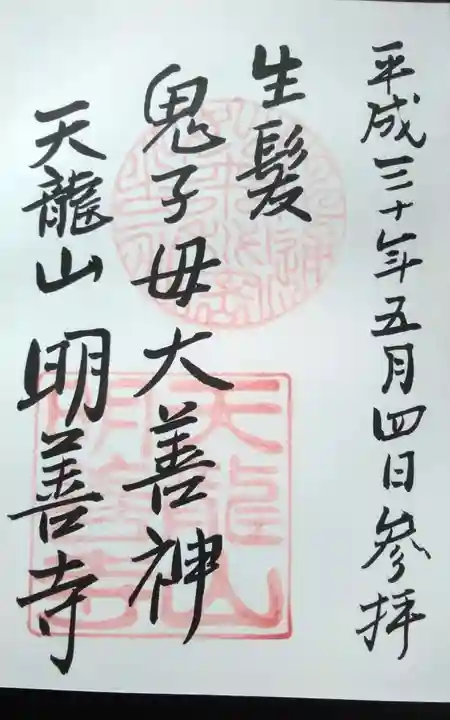 平成三十年五月四日参拝
生髪
鬼子母大善神
天龍山 明善寺
天龍山
明善寺